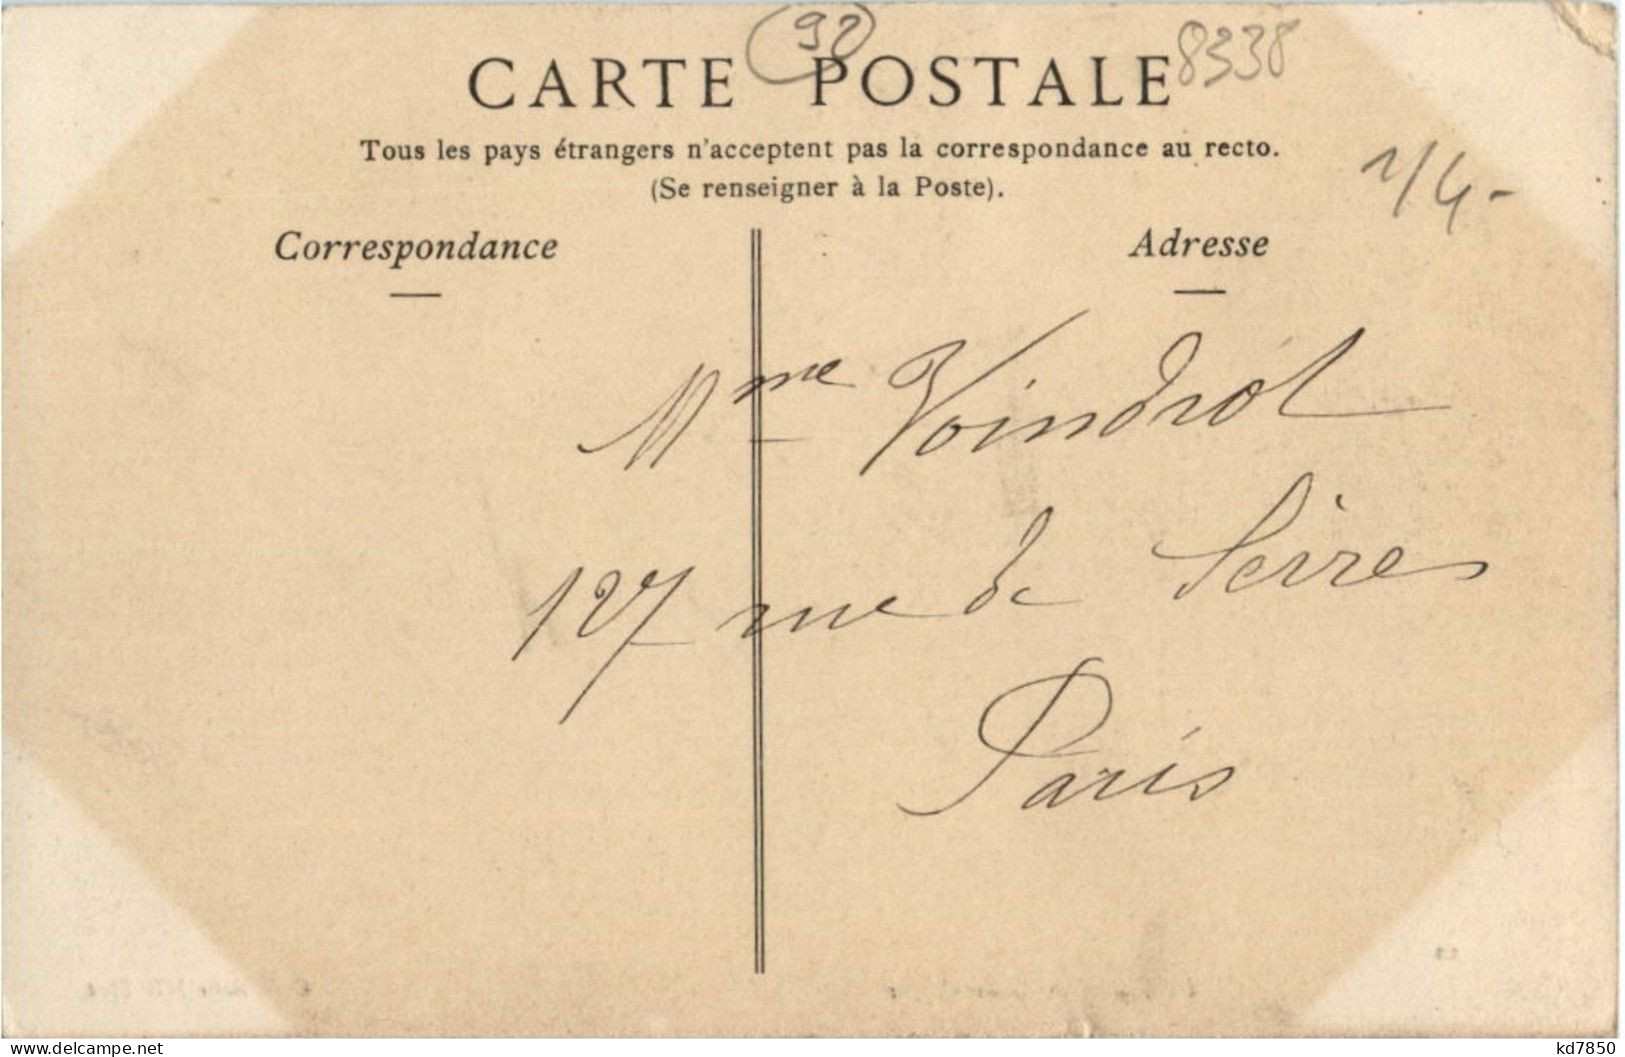 92
8338
CARTE POSTALE
Tous les pays étrangers n'acceptent pas la correspondance au recto.
(Se renseigner à la Poste).
Correspondance
Adresse
Mme Voindrot
127 rue de Sèvres
Paris
delcampe.net
kd7850